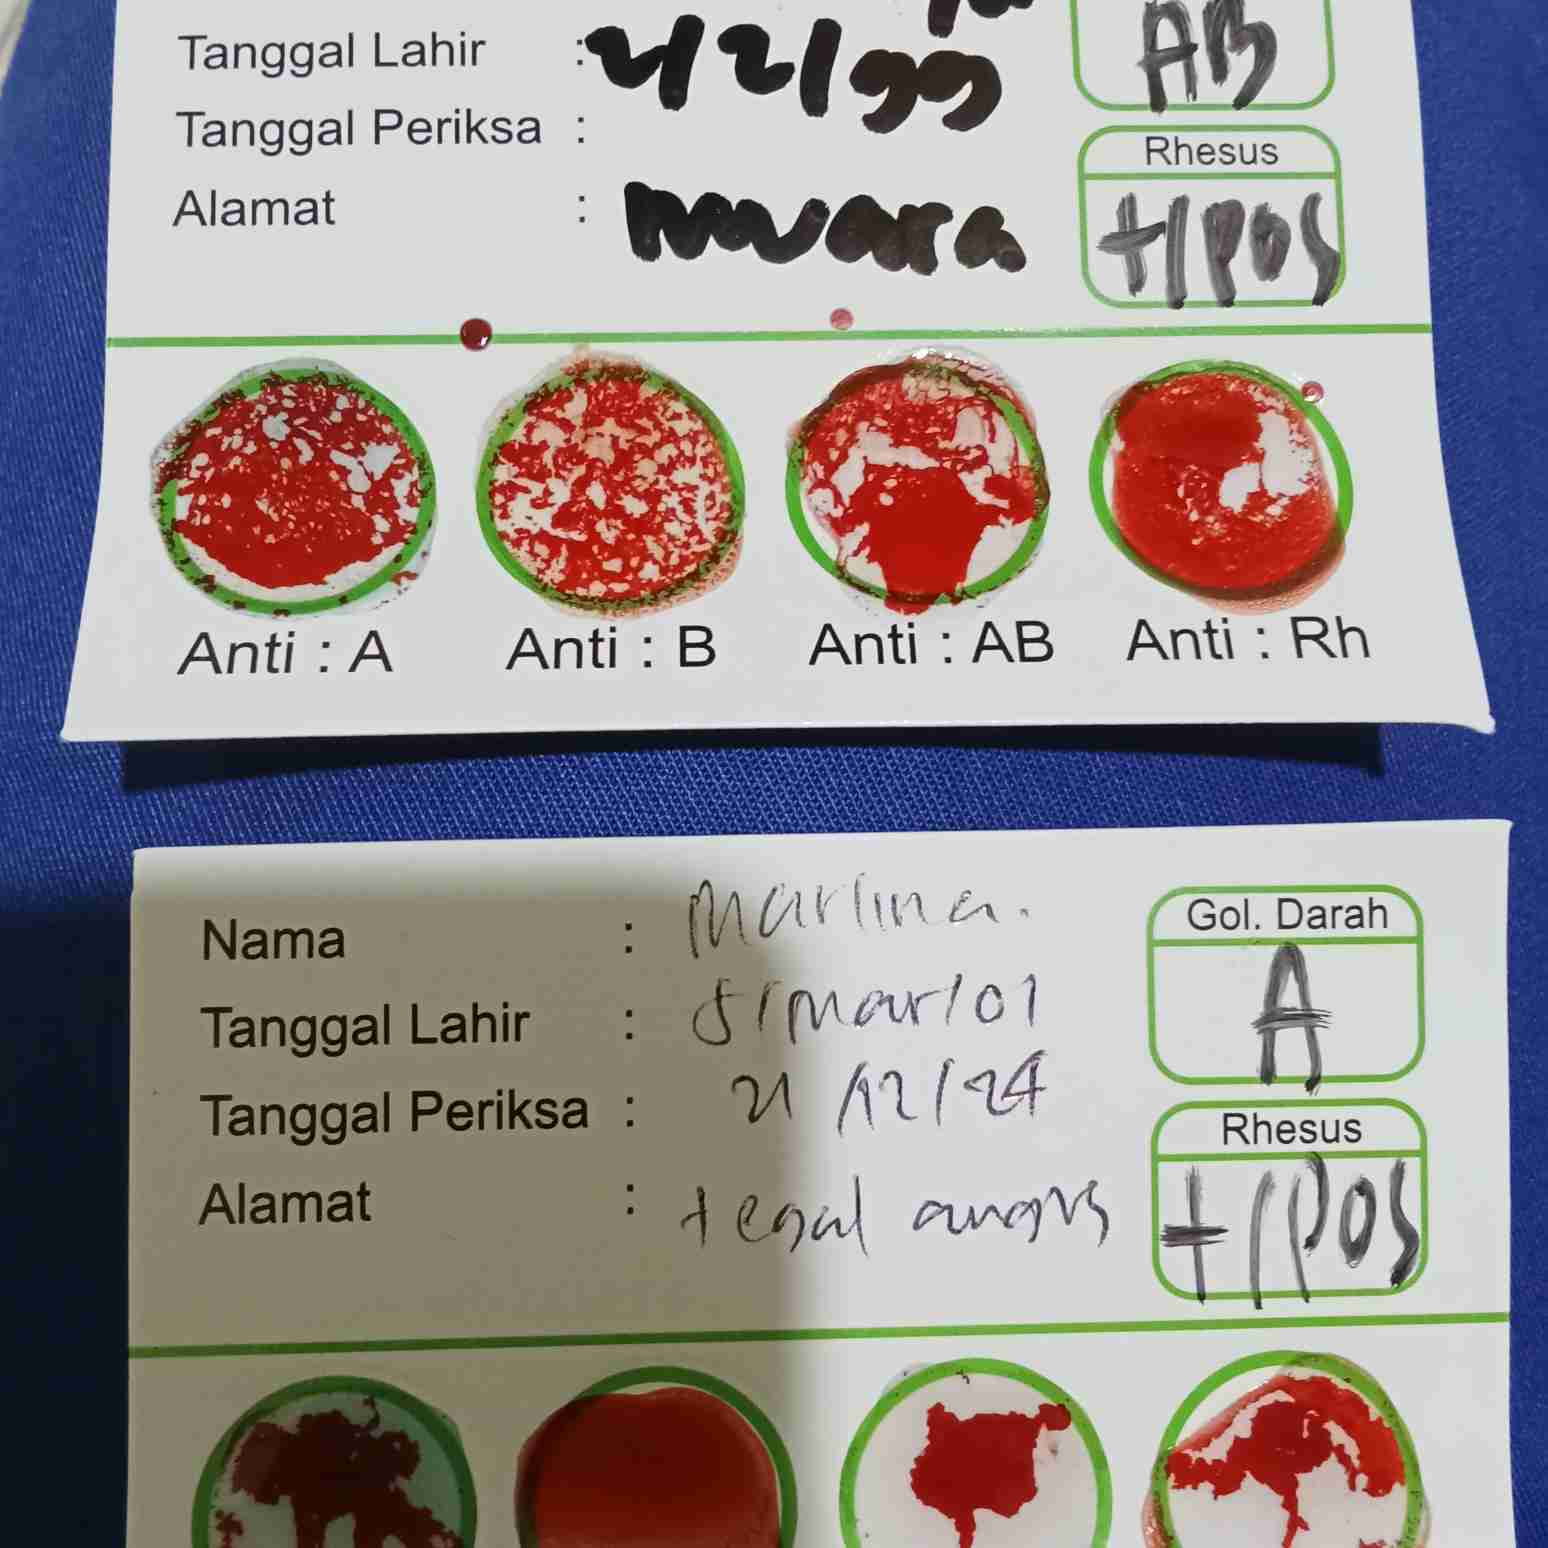 AB
Tanggal Lahir : 21/21/99
Tanggal Periksa :
Rhesus
Alamat :
+/POS
Anti : A Anti : B Anti : AB Anti : Rh
Nama : Marlina.
Gol. Darah
A
Tanggal Lahir : 5/Mar/01
Tanggal Periksa : 21/12/24
Rhesus
Alamat : tegal angus
+/POS